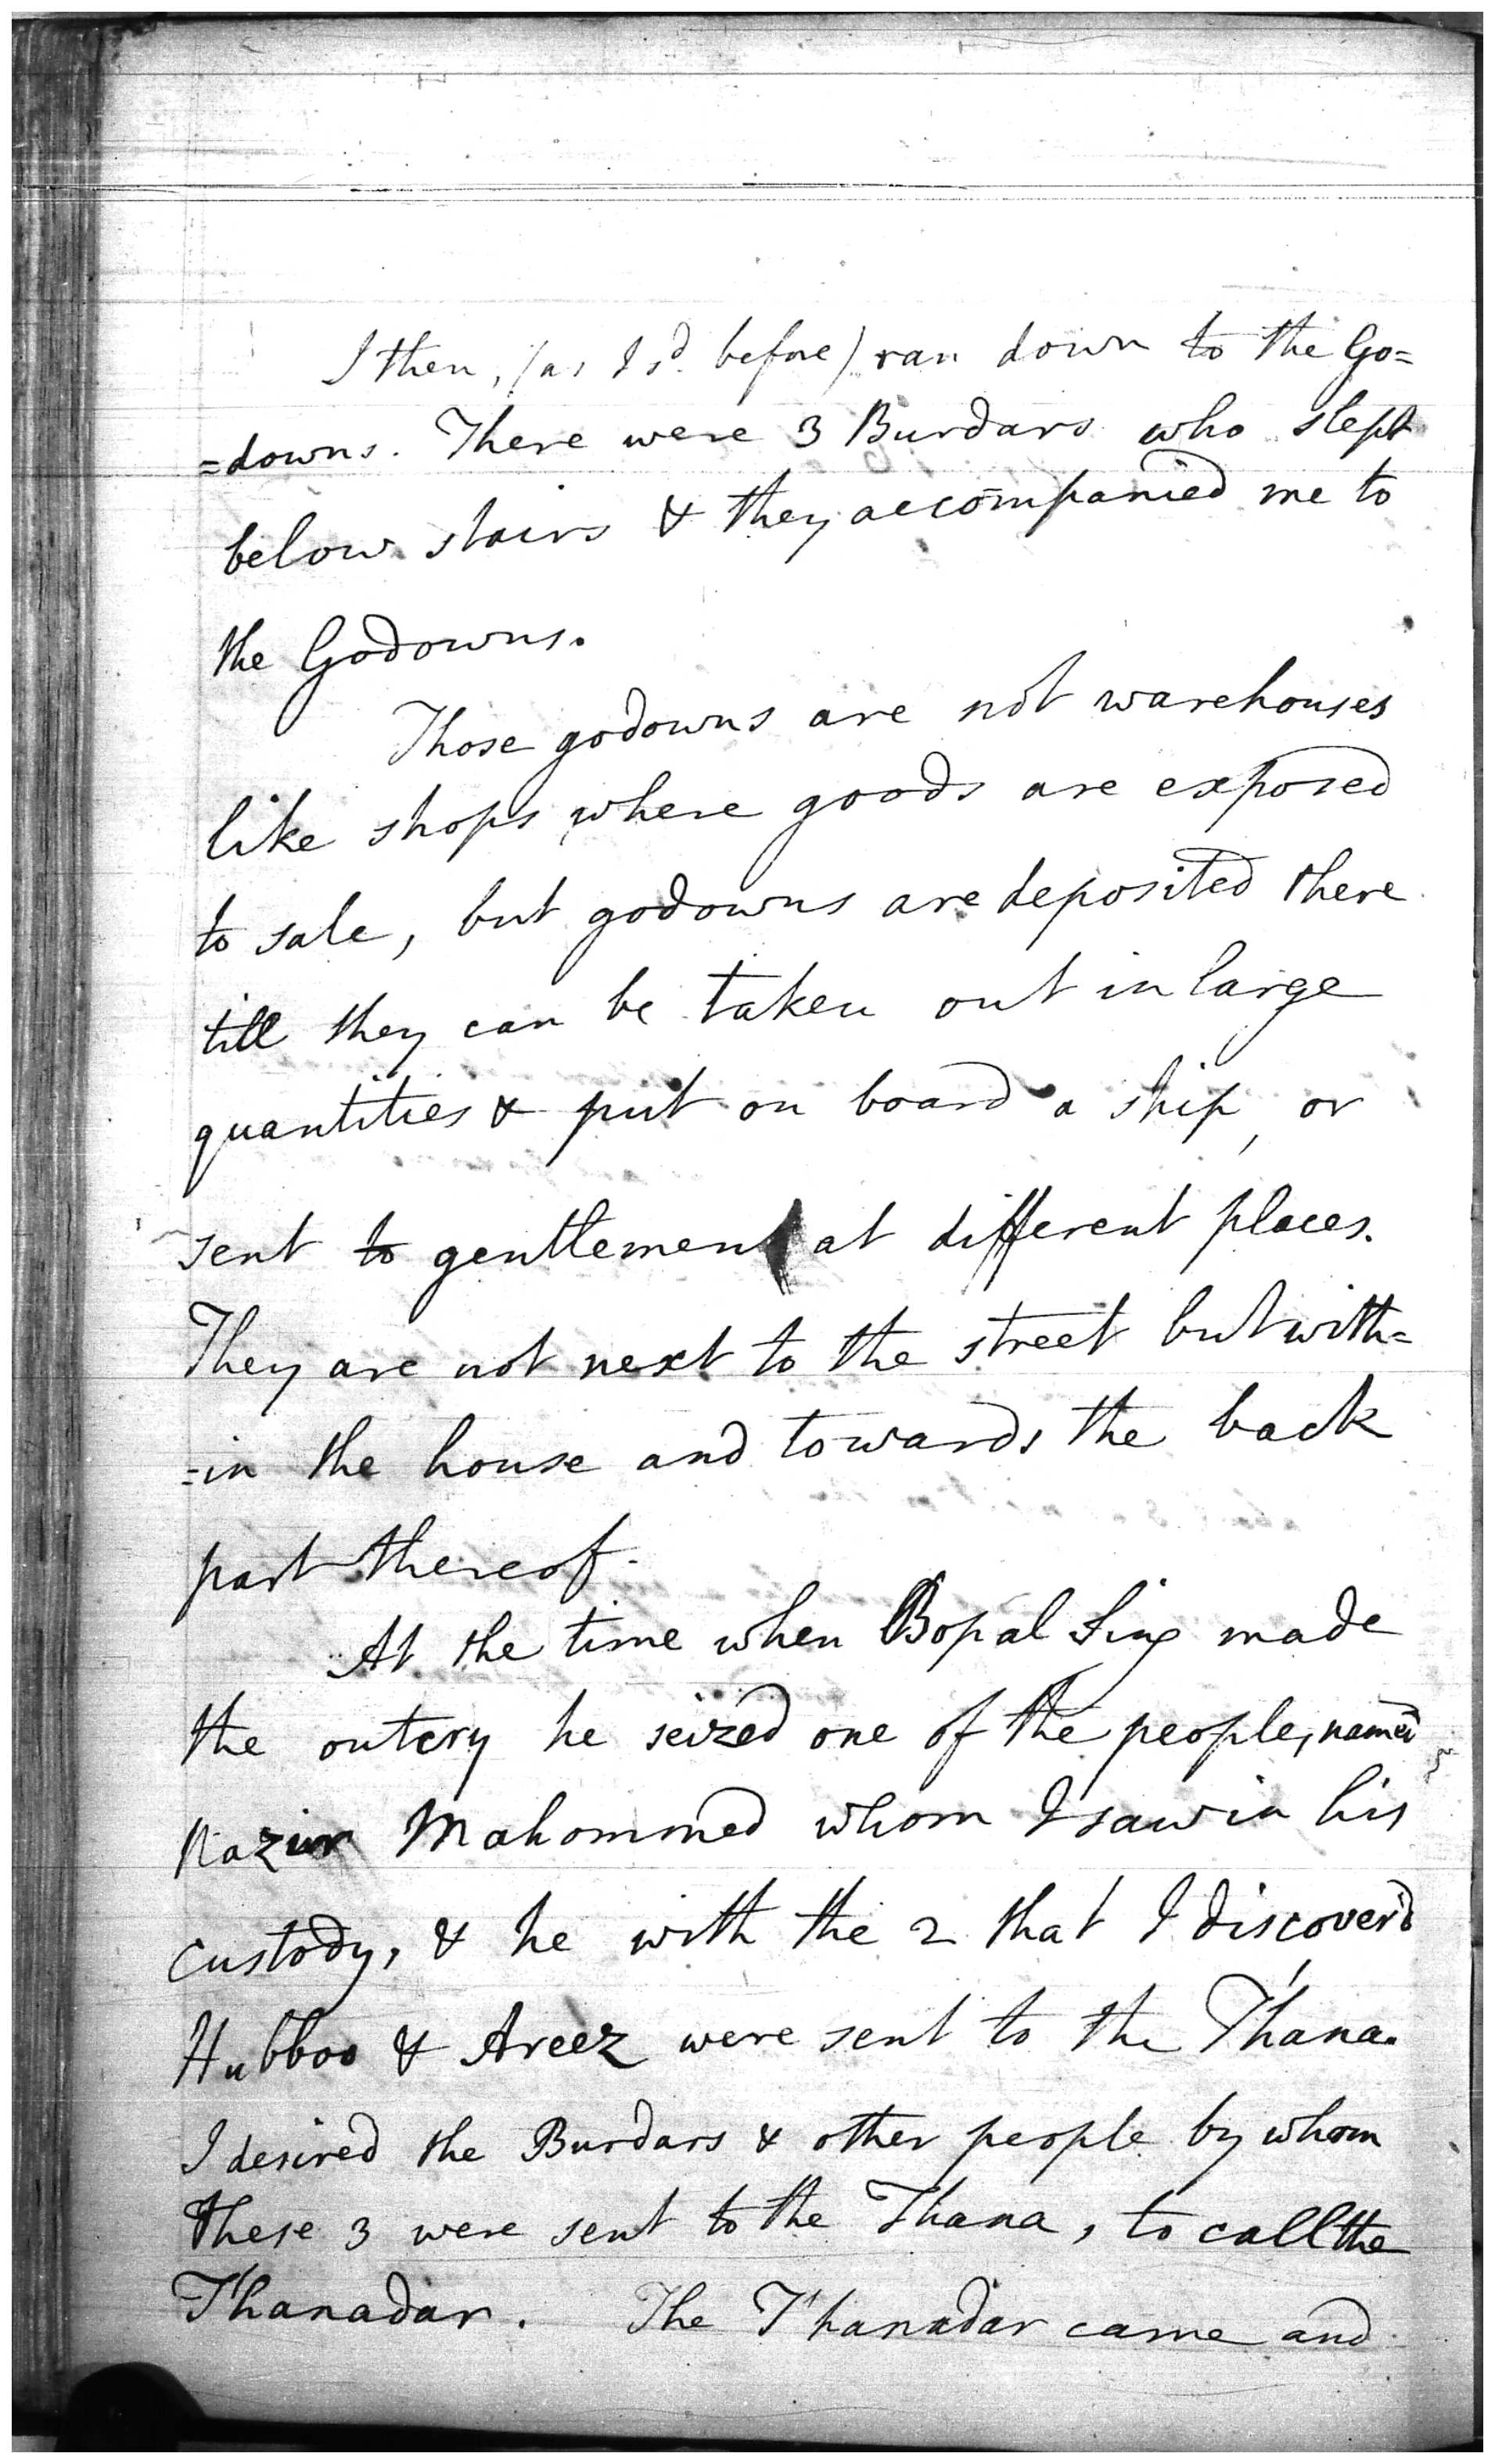 I then, (as I sd. before) ran down to the Go=
=downs. There were 3 Burdars who slept
below stairs & they accompanied me to
the Godowns.
Those godowns are not warehouses
like shops where goods are exposed
to sale, but godowns are deposited there
till they can be taken out in large
quantities & put on board a ship, or
sent to gentlemen at different places.
They are not next to the street but with=
=in the house and towards the back
part thereof.
At the time when Bopal Sing made
the outcry he seized one of the people, named
Nazir Mahommed whom I saw in his
custody, & he with the 2 that I discover'd
Hubboo & Areez were sent to the T'hana.
I desired the Burdars & other people by whom
these 3 were sent to the Thana, to call the
T'hanadar. The T'hanadar came and